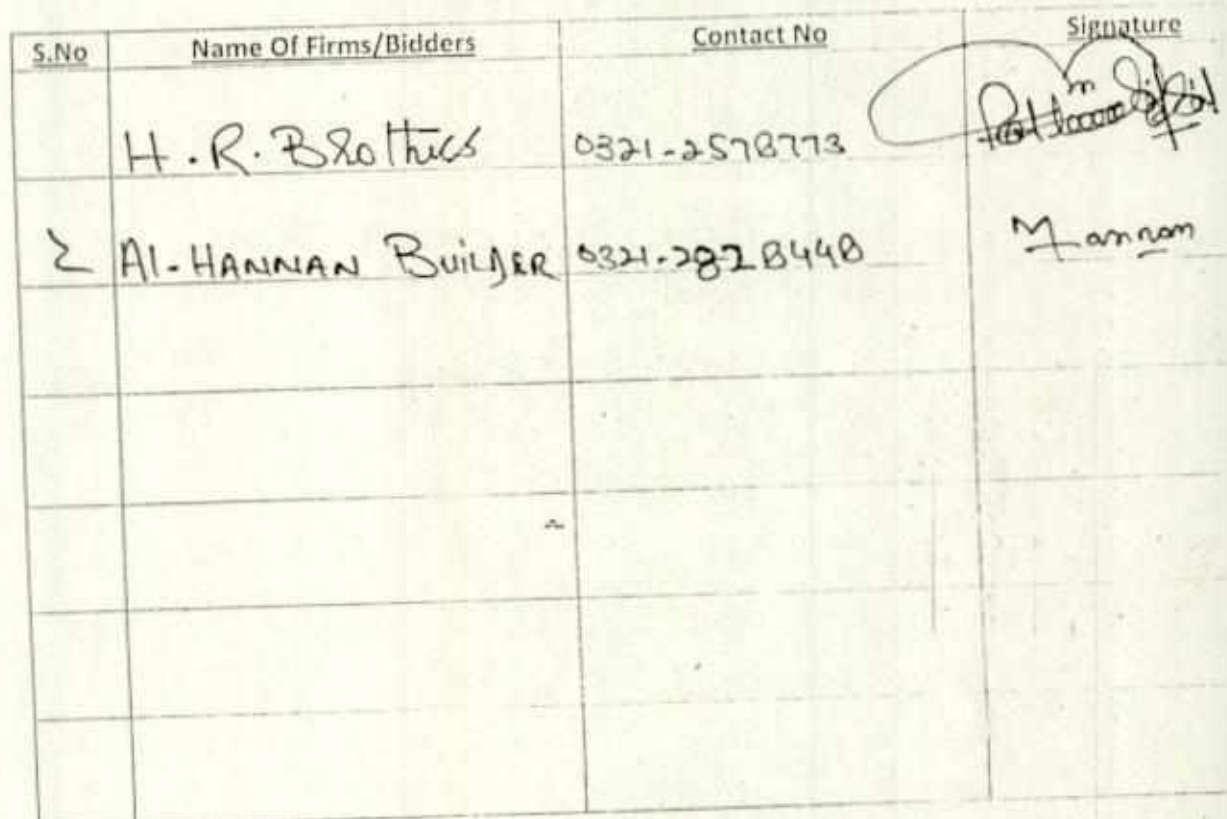 S.No Name Of Firms/Bidders Contact No Signature
H.R. Brothers 0321-2578773
2 Al-HANNAN BUILDER 0321-2828448 Mannan